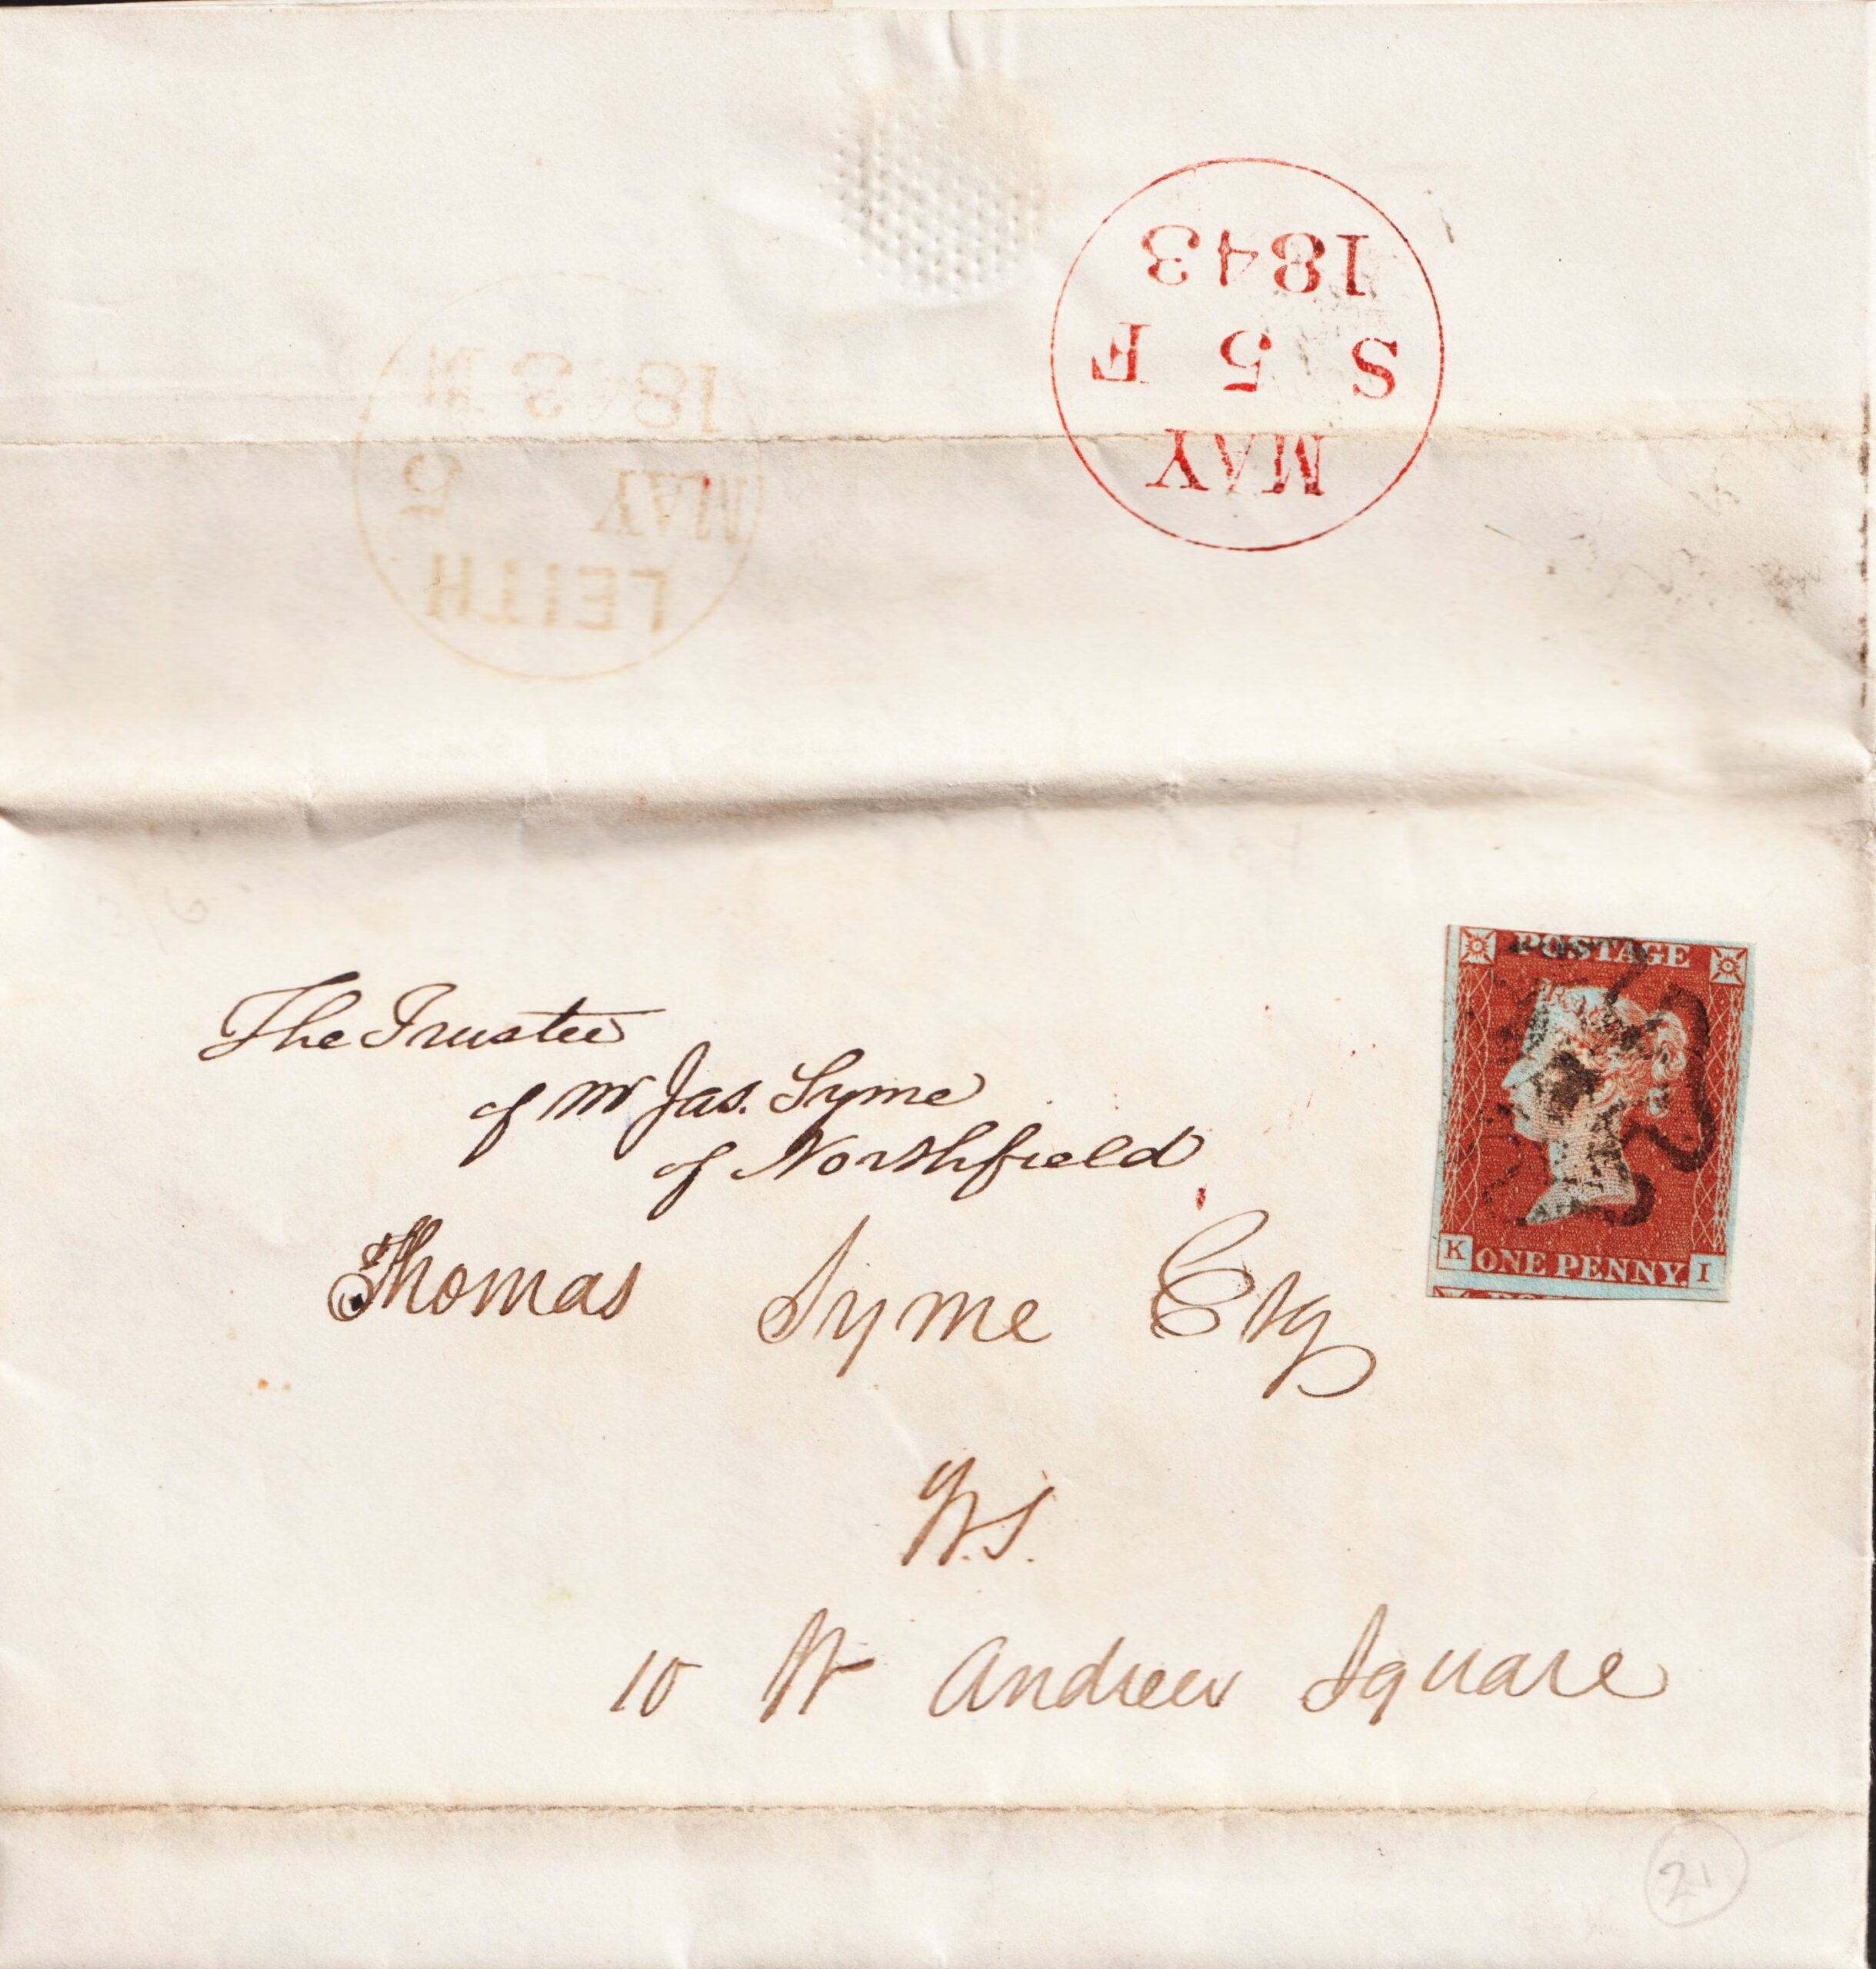 1843
S 5 F
MAY
1843
MAY 5
LEITH
The Trustee
of Mr Jas. Syme
of Northfield
Thomas Syme Esq
W.S.
10 St Andrew Square
POSTAGE
K ONE PENNY. I
21